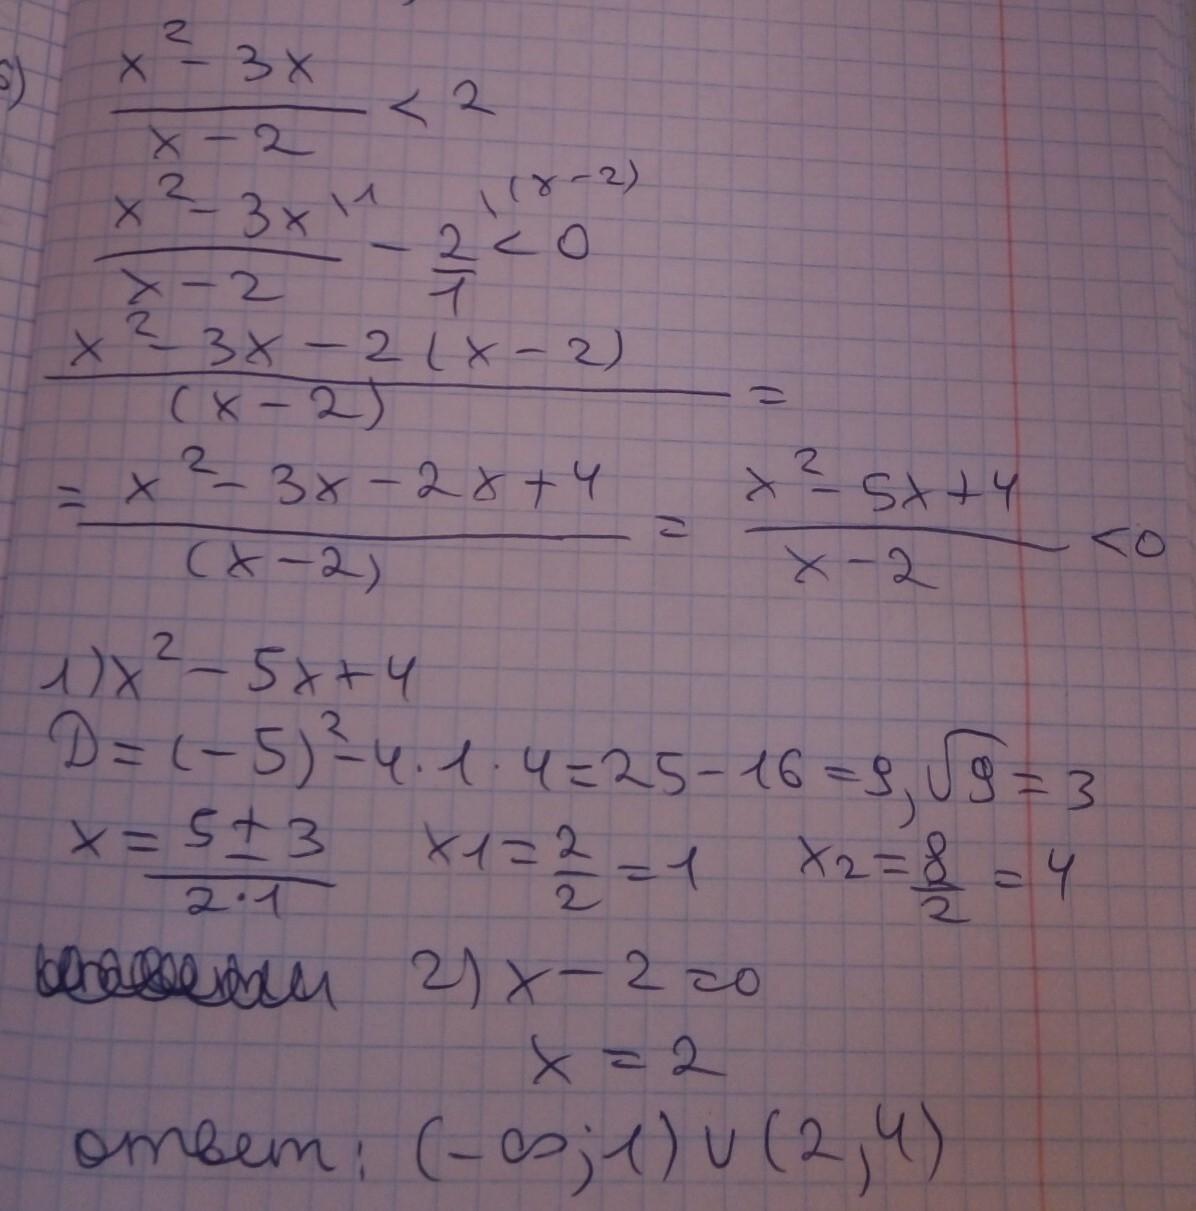 x² - 3x / x - 2 < 2
x² - 3x \1 / x - 2 - 2 \(x-2) / 1 < 0
x² - 3x - 2(x - 2) / (x - 2) =
= x² - 3x - 2x + 4 / (x - 2) = x² - 5x + 4 / x - 2 < 0
1) x² - 5x + 4
D = (-5)² - 4 · 1 · 4 = 25 - 16 = 9, √9 = 3
x = 5 ± 3 / 2 · 1 x1 = 2 / 2 = 1 x2 = 8 / 2 = 4
2) x - 2 = 0
x = 2
ответ: (-∞; 1) ∪ (2, 4)